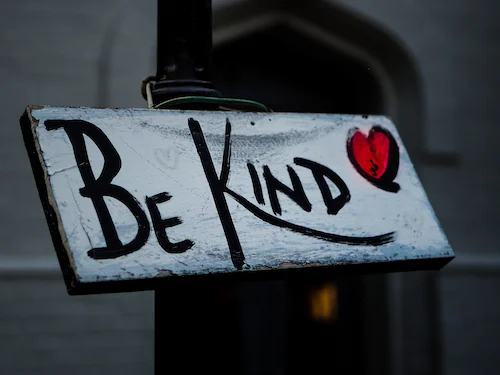 Be Kind